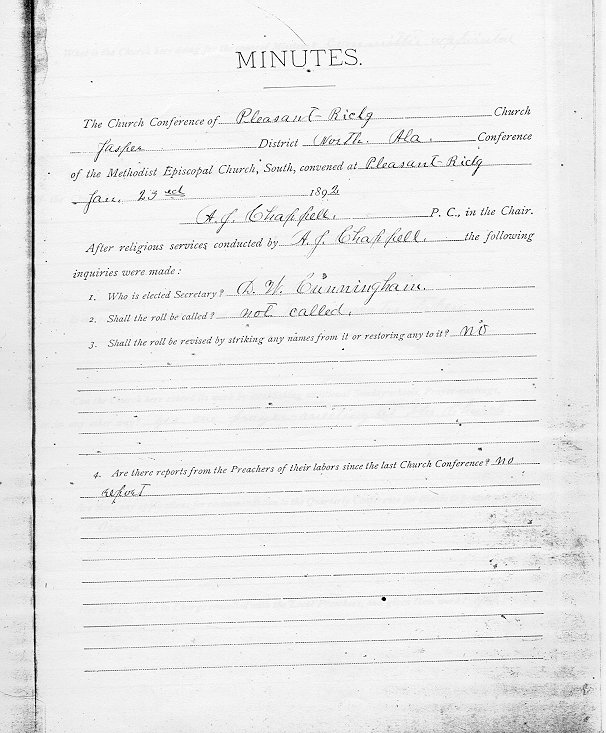 MINUTES.
The Church Conference of Pleasant-Ridg Church
Jasper District North. Ala. Conference
of the Methodist Episcopal Church, South, convened at Pleasant-Ridg
Jan. 23rd 1892
A. J. Chappell. P. C., in the Chair.
After religious services conducted by A. J. Chappell. the following
inquiries were made:
1. Who is elected Secretary? D. W. Cunningham.
2. Shall the roll be called? not called.
3. Shall the roll be revised by striking any names from it or restoring any to it? no
4. Are there reports from the Preachers of their labors since the last Church Conference? no
report